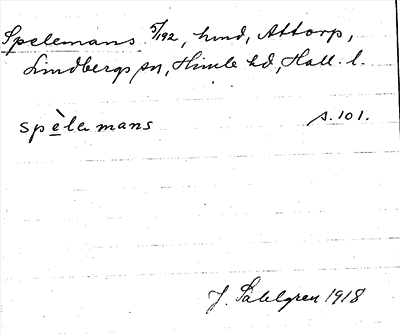 Spelemans 5/192, hmd, Attorp,
Lindbergs sn, Himle hd, Hall. l.
spèlemans s. 101.
J. Sahlgren 1918